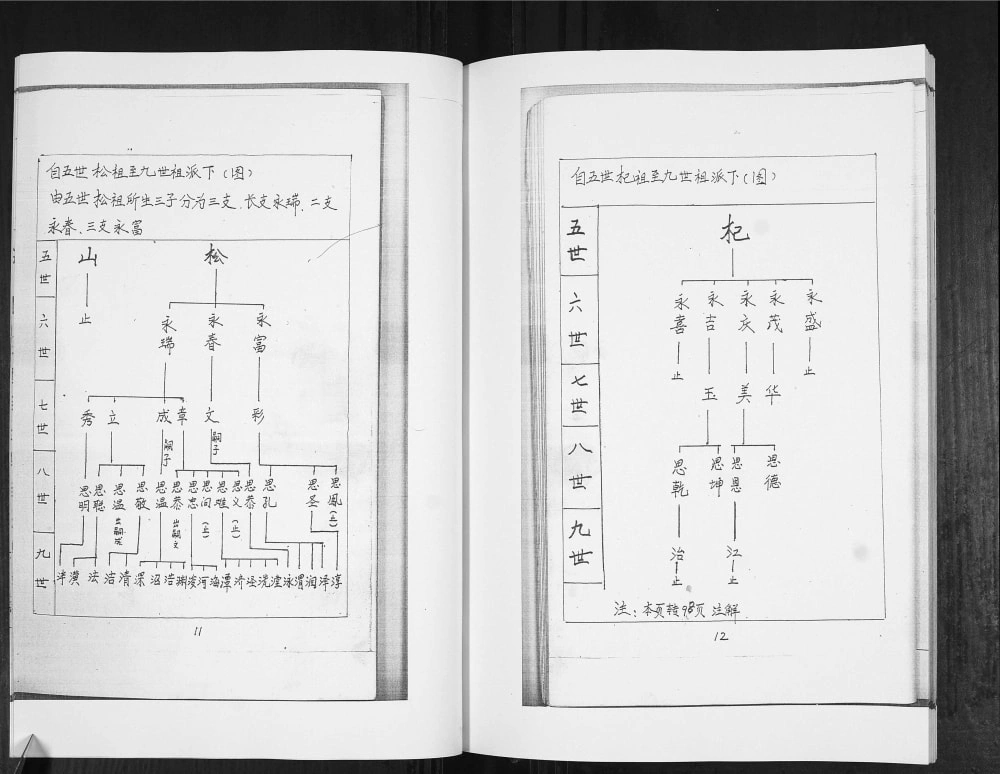 自五世松祖至九世祖派下(图)
由五世松祖所生三子分为三支、长支永瑞、二支
永春、三支永富
五世
山 松
六世
止 永瑞 永春 永富
七世
秀 立 成 章 文 彩
嗣子 嗣子
八世
思明 思聪 思温 思敬 思温 思恭 思忠 思问 思难 思义 思恭 思孔 思圣 思凤
出嗣成 出嗣文 (止) (止) (止)
九世
泮 漢 法 洁 清 深 沼 浩 渊 浚 河 海 潭 济 泾 洸 溎 泳 渭 润 泽 淳
11
自五世杞祖至九世祖派下(图)
五世
杞
六世
永喜 永吉 永庆 永茂 永盛
止 止
七世
玉 美 华
八世
思乾 思坤 思恩 思德
九世
治 江
止 止
注:本页转98页 注解
12